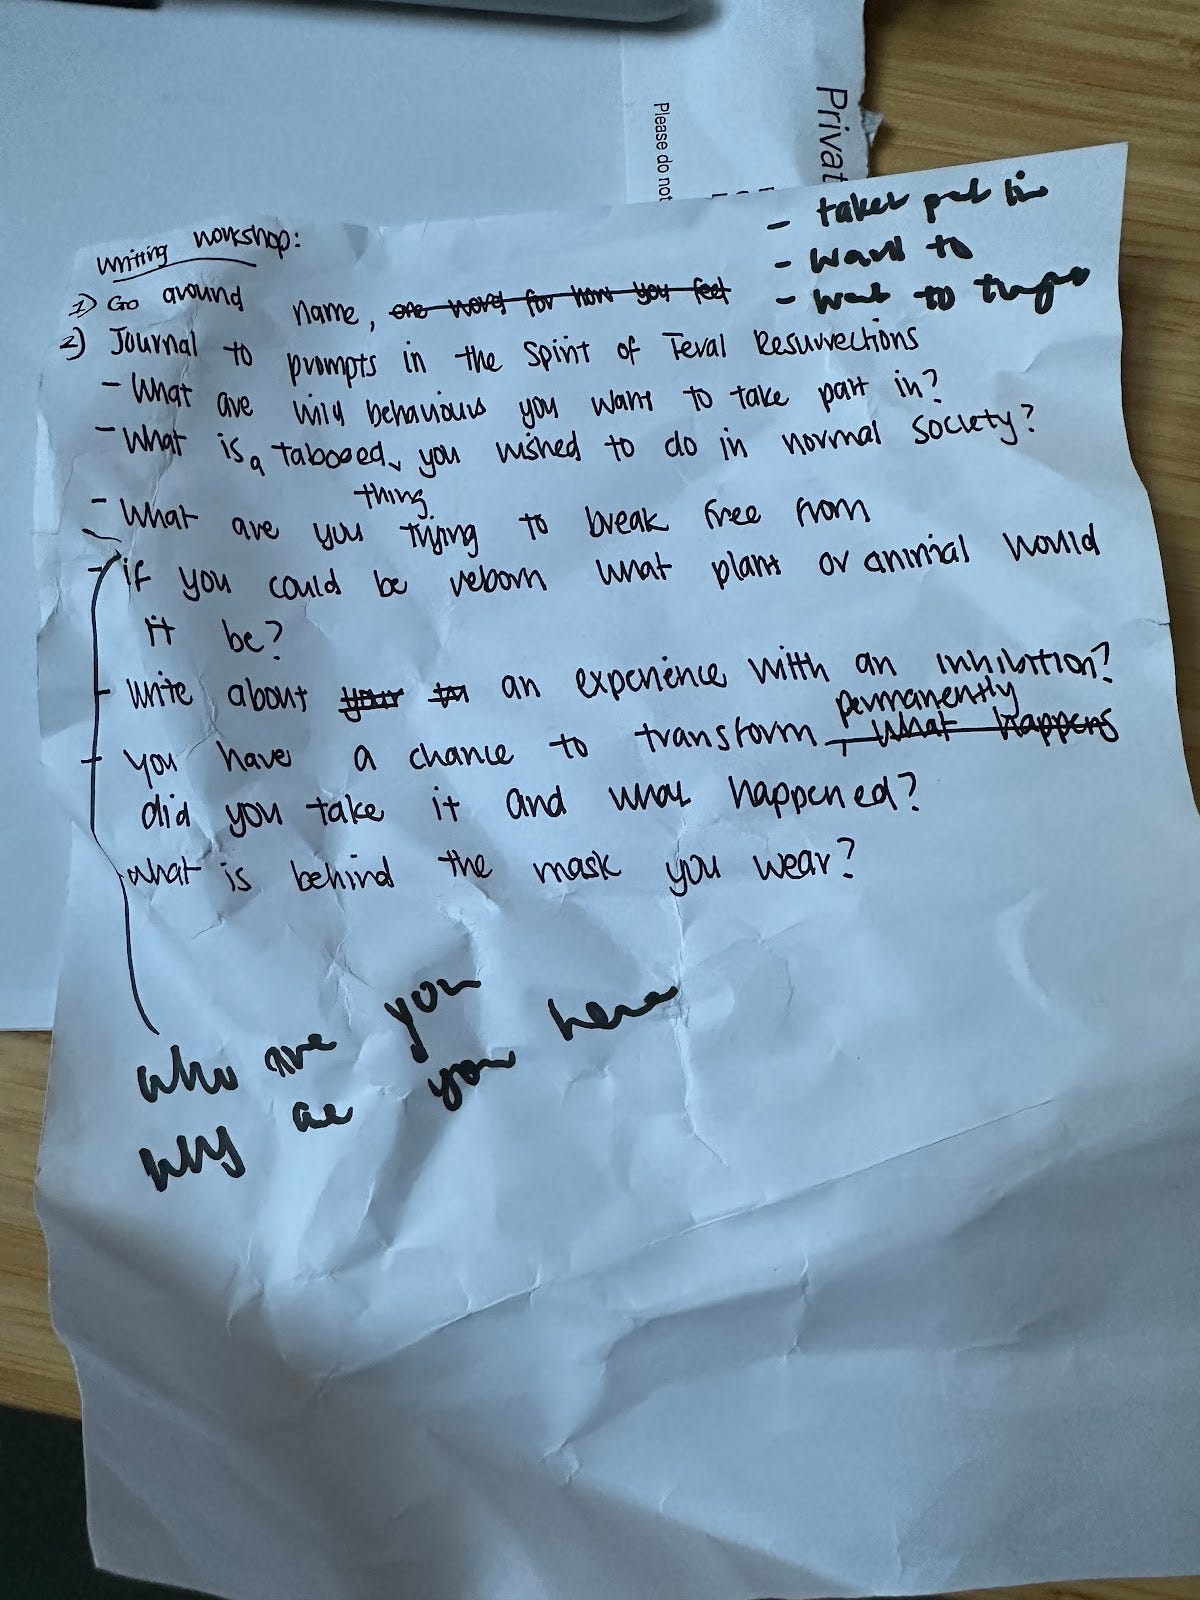 Privat
Please do not
- taken part in
- want to
- want to
Writing workshop:
1) Go around name, one word for how you feel
2) Journal to prompts in the spirit of Feral Resurrections
- What are wild behaviours you want to take part in?
- What is a tabooed thing you wished to do in normal society?
- What are you trying to break free from
- if you could be reborn what plant or animal would
it be?
- Write about your an experience with an inhibition?
- you have a chance to transform permanently, what happens
did you take it and what happened?
what is behind the mask you wear?
who are you
why are you here